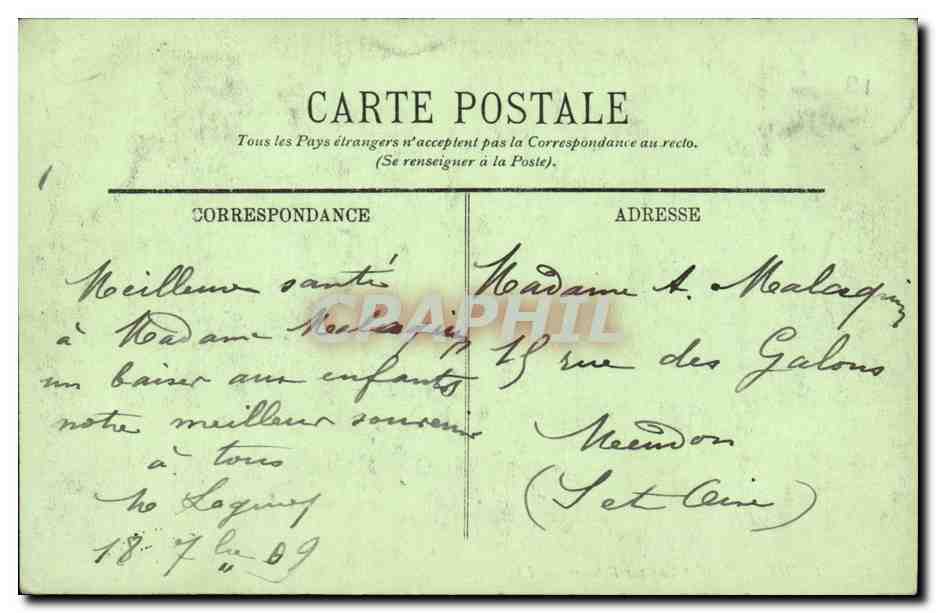 CARTE POSTALE
Tous les Pays étrangers n'acceptent pas la Correspondance au recto.
(Se renseigner à la Poste).
CORRESPONDANCE
ADRESSE
Meilleure santé
à Madame Malaquin
un baiser aux enfants
notre meilleur souvenir
à tous
18 7bre 09
Madame A. Malaquin
15 rue des Galons
Meudon
(S et Oise)
CPAPHIL